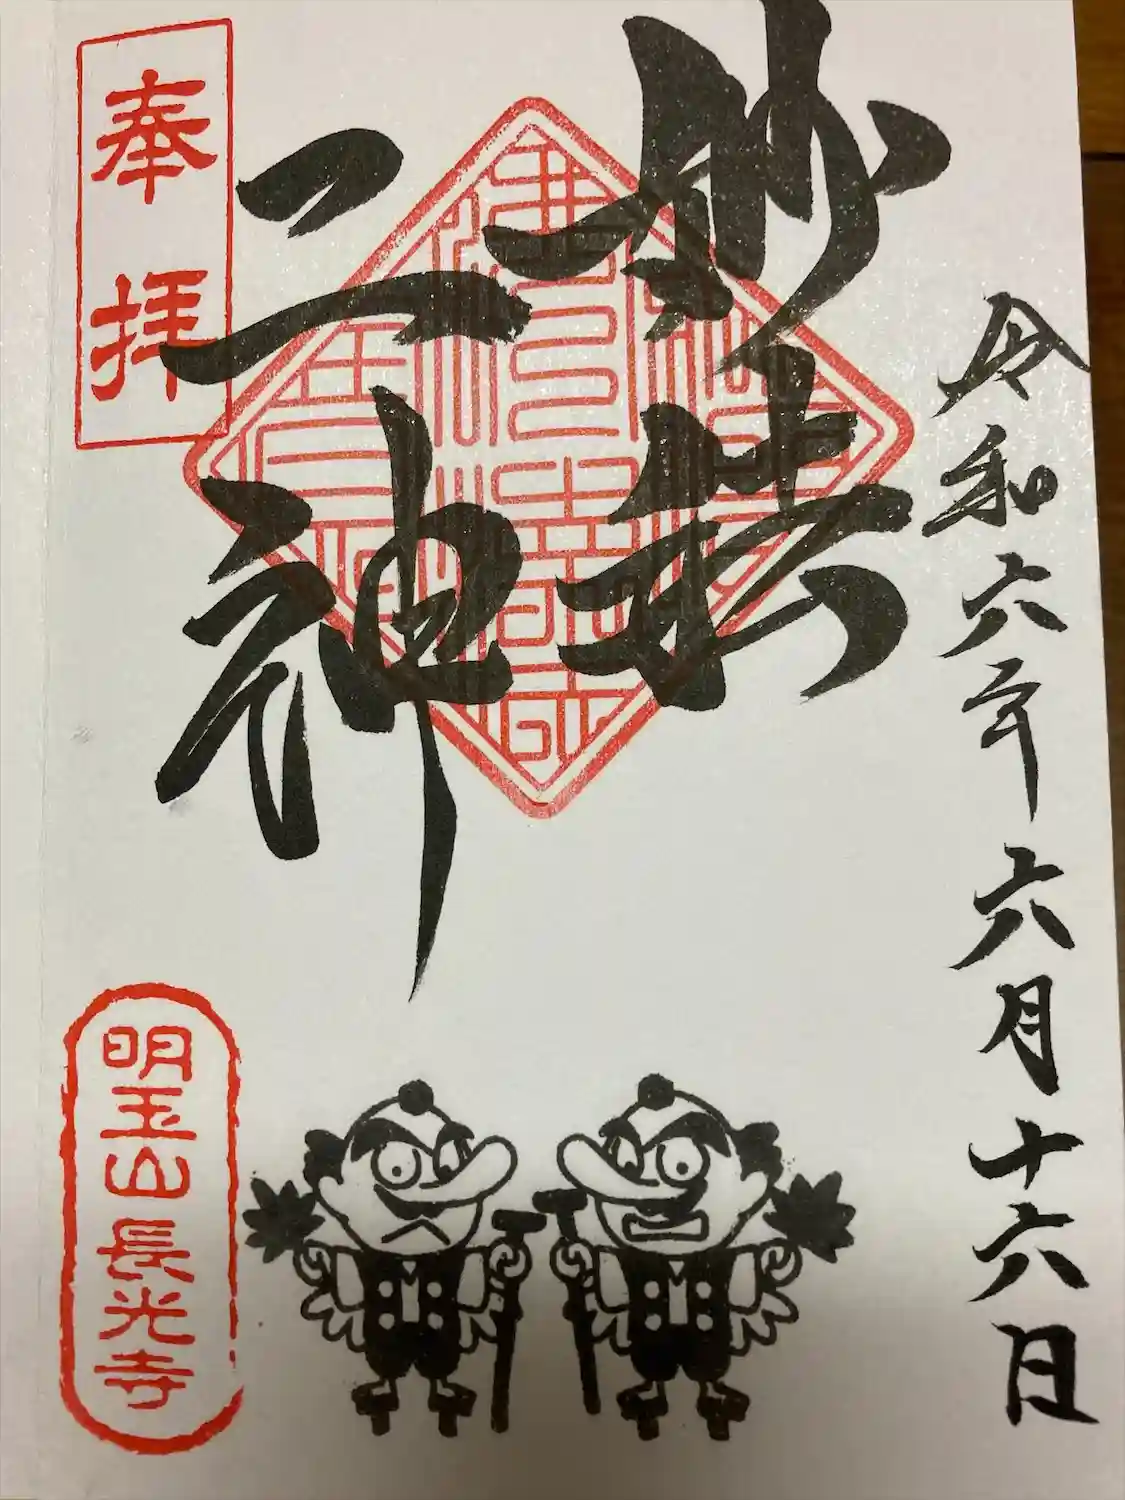 令和六年六月十六日
妙扶
二神
奉拝
明玉山長光寺